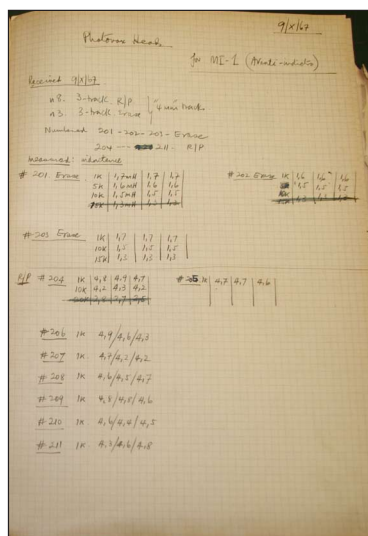 9/X/67
Photovox Heads
for MI-1 (
Received 9/X/67
n8. 3-track R/P
n3. 3-track Erase 4 mm track
Numbered 201-202-203- Erase
204 --- 211. R/P
measured: inductance
#201 Erase 1K 1,7mH 1,7 1,7
5K 1,6mH 1,6 1,6
10K 1,5mH 1,5 1,5
#202 Erase 1K 1,6 1,6 1,6
1,5 1,5 1,5
#203 Erase 1K 1,7 1,7 1,7
10K 1,5 1,5 1,5
15K 1,3 1,3 1,3
R/P #204 1K 4,8 4,9 4,7
10K 4,2 4,3 4,2
#205 1K 4,7 4,7 4,6
#206 1K 4,4/4,6/4,3
#207 1K 4,7/4,2/4,2
#208 1K 4,6/4,5/4,7
#209 1K 4,8/4,8/4,6
#210 1K 4,6/4,4/4,5
#211 1K 4,8/4,6/4,8